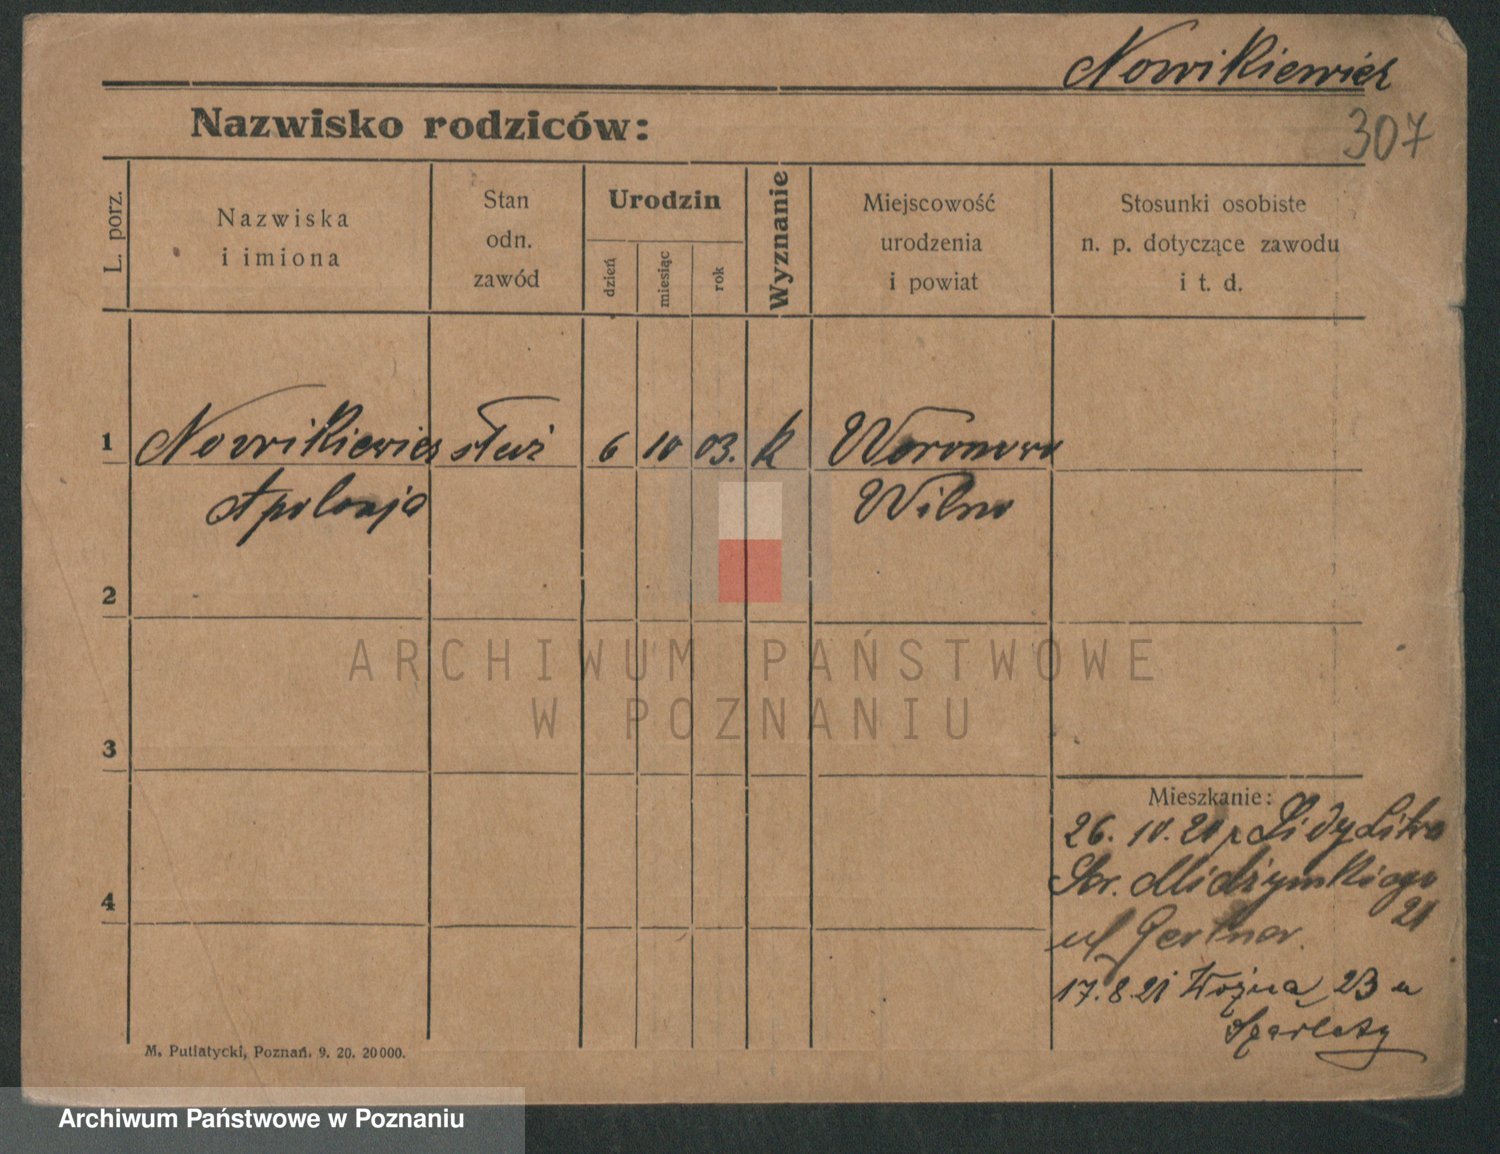 Nowikiewicz
307
Nazwisko rodziców:
L. porz.
Nazwiska
i imiona
Stan
odn.
zawód
Urodzin
dzień
miesiąc
rok
Wyznanie
Miejscowość
urodzenia
i powiat
Stosunki osobiste
n. p. dotyczące zawodu
i t. d.
1 Nowikiewicz służ 6 10 03. k Woronowo
Apolonja Wilno
2
3
4
ARCHIWUM PAŃSTWOWE
W POZNANIU
Mieszkanie:
26. 10. 20 z Lidy Litwa
Str.
21
ul Gertner.
17. 8 21 Woźna 23 u
M. Putiatycki, Poznań. 9. 20. 20000.
Archiwum Państwowe w Poznaniu